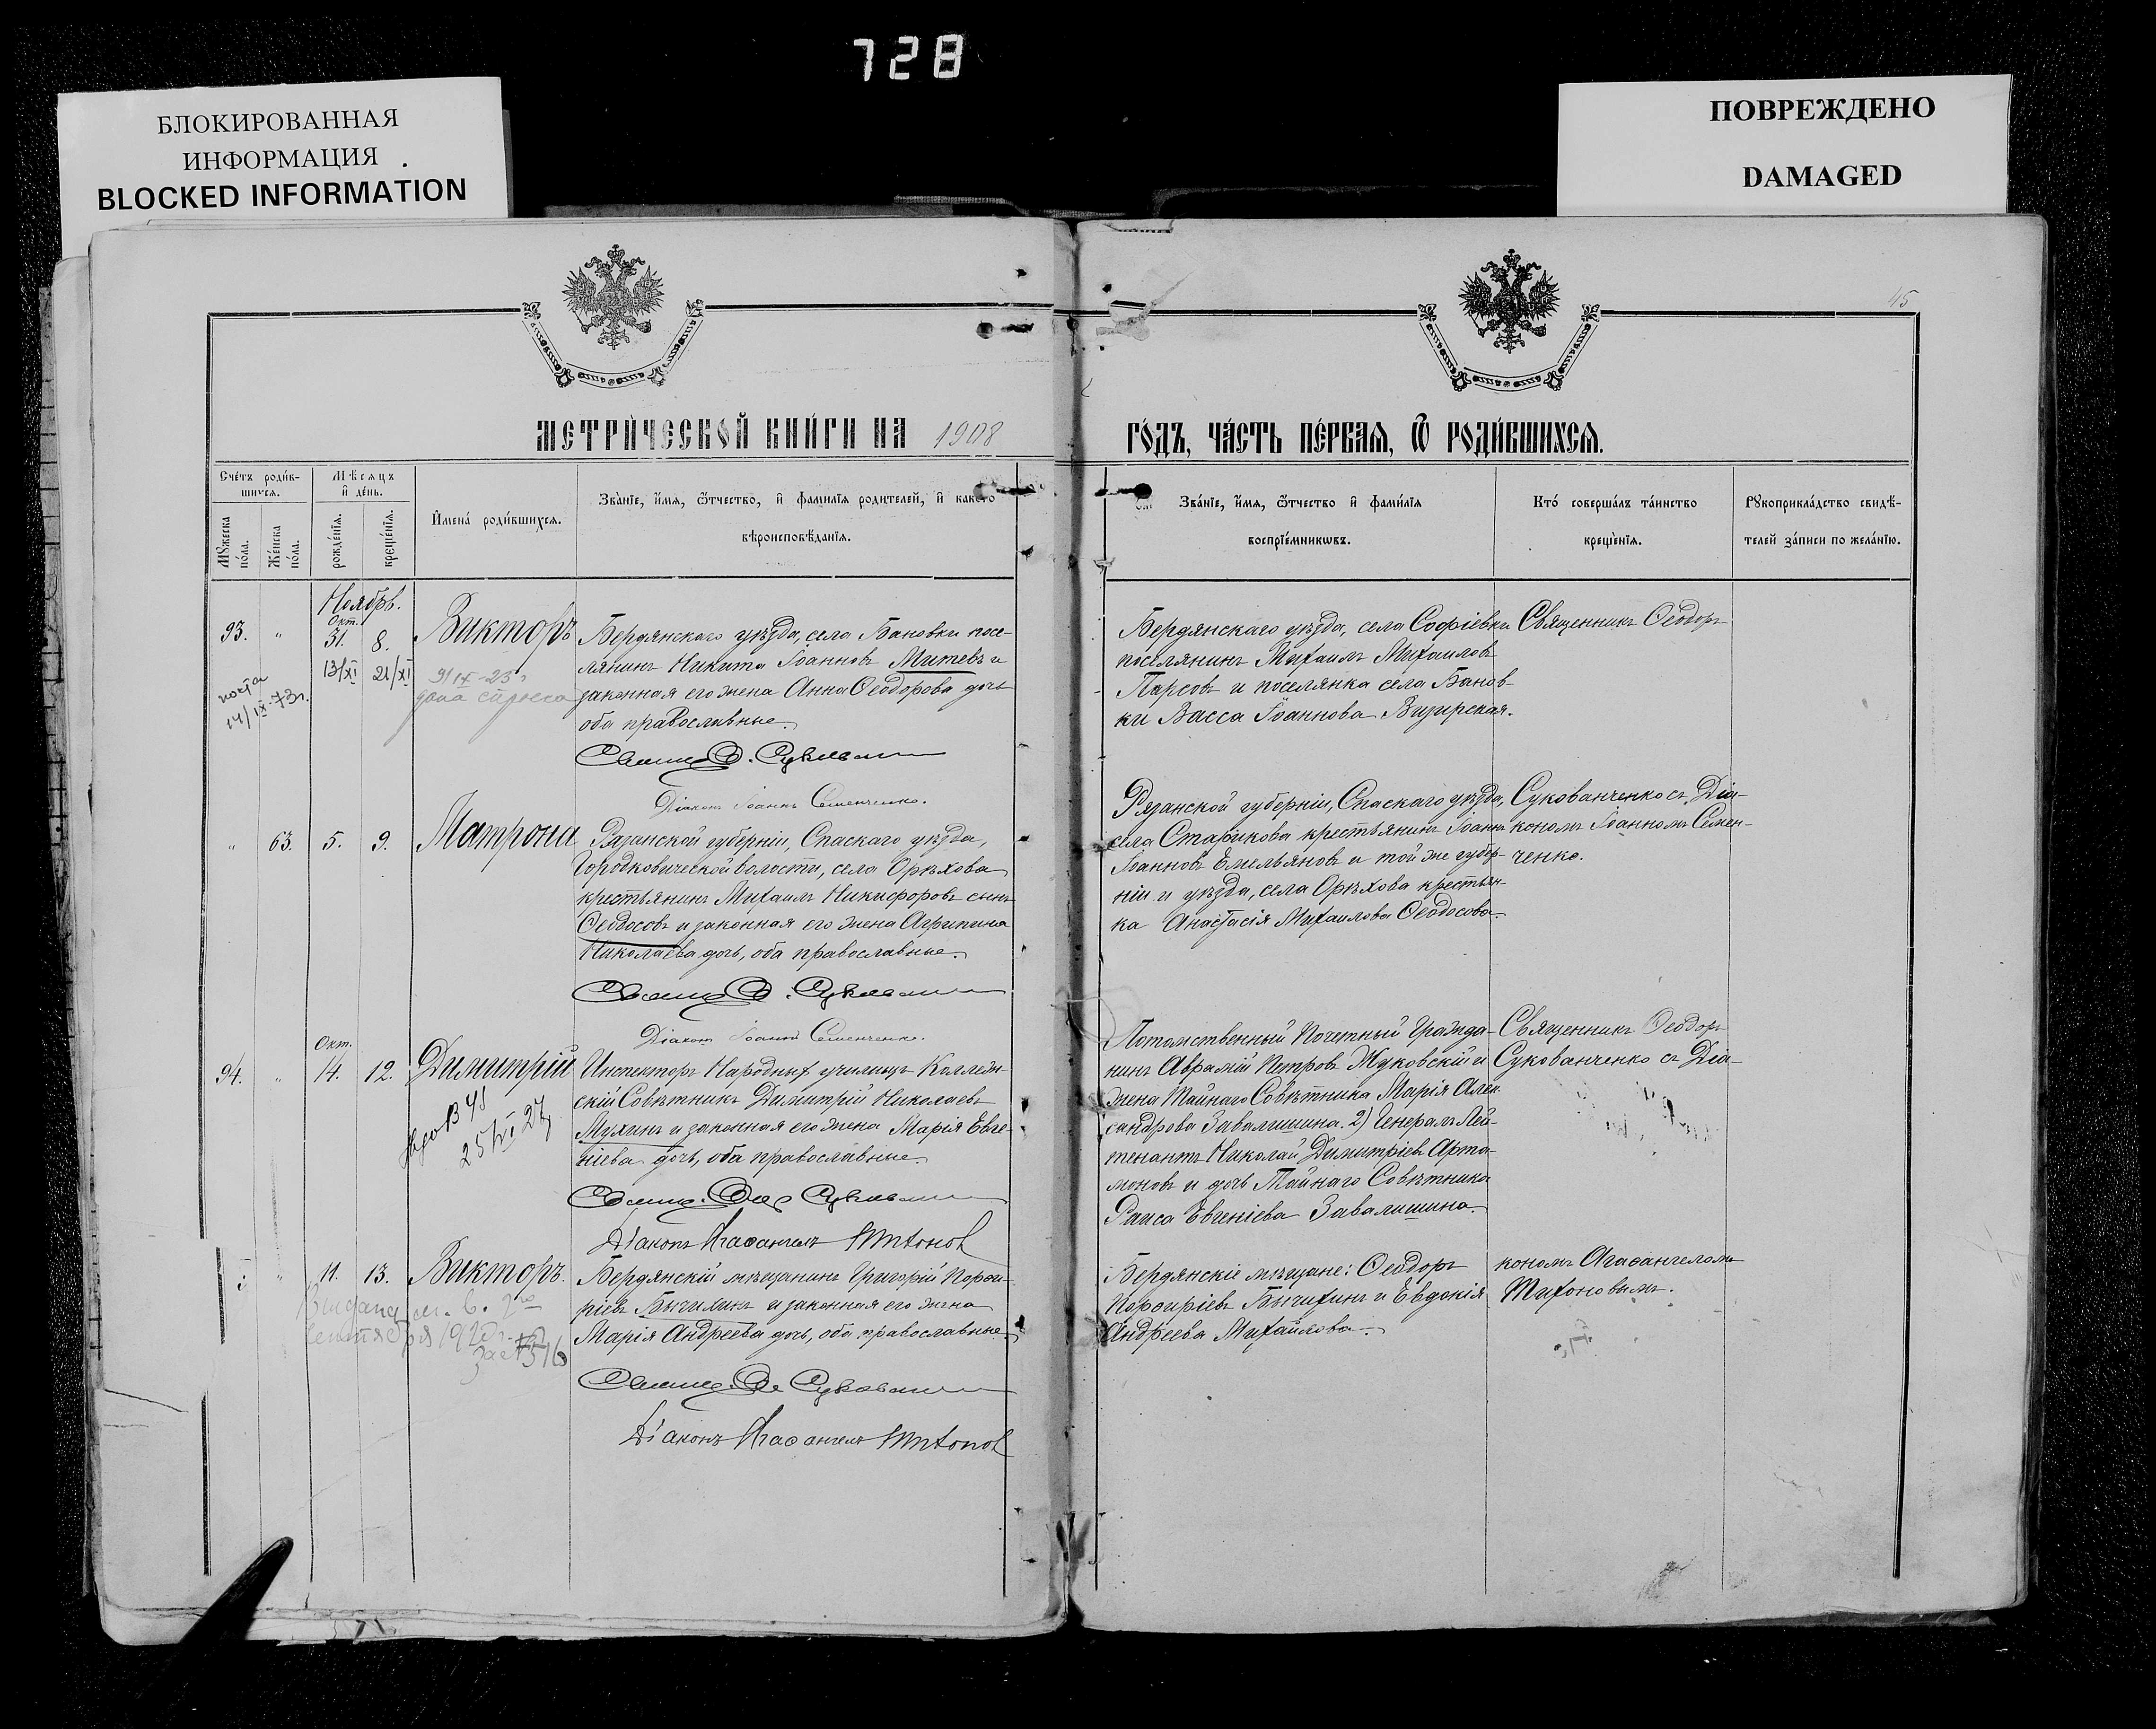 728
БЛОКИРОВАННАЯ
ИНФОРМАЦИЯ
BLOCKED INFORMATION
ПОВРЕЖДЕНО
DAMAGED
45
МЕТРИ́ЧЕСКОЙ КНИ́ГИ НА 1908
ГО́ДЪ, ЧА́СТЬ ПЕ́РВАѦ, Ѿ РОДИ́ВШИХСѦ.
Сче́тъ роди́в-
шихсѧ.
Мꙋжеска по́ла.
Же́нска по́ла.
Мѣсѧцъ
и҆ де́нь.
рожде́нїѧ.
креще́нїѧ.
И҆мена̀ роди́вшихсѧ.
Зва́нїе, и҆́мѧ, ѻ҆́тчество, и҆ фами́лїѧ роди́телей, и҆ како́го
вѣроисповѣ́данїѧ.
Зва́нїе, и҆́мѧ, ѻ҆́тчество и҆ фами́лїѧ
воспрїе́мникѡвъ.
Кто́ соверша́лъ та́инство
креще́нїѧ.
Рꙋкоприкла́дство свидѣ́-
телей за́писи по жела́нїю.
Ноябрь.
Окт.
93. " 31. 8. Викторъ
13/XI 21/XI
14/IX-73г.
Бердянскаго уѣзда, села Бановки посе-
лянинъ Никита Іоанновъ Митевъ и
законная его жена Анна Ѳеодорова дочь
оба православные.
Діаконъ Іоаннъ Семенченко.
Бердянскаго уѣзда, села Софіевки
поселянинъ Михаилъ Михаиловъ
Парсовъ и поселянка села Банов-
ки Васса Іоаннова Визирская.
Священникъ Ѳеодоръ
" 63. 5. 9. Матрона
Рязанской губерніи, Спаскаго уѣзда,
Городковической волости, села Орѣхова
крестьянинъ Михаилъ Никифоровъ сынъ
Ѳеодосовъ и законная его жена Агрипина
Николаева дочь, оба православные.
Діаконъ Іоаннъ Семенченко.
Рязанской губерніи, Спаскаго уѣзда,
села Старикова крестьянинъ Іоаннъ
Іоанновъ Емельяновъ и той же губер-
ніи и уѣзда, села Орѣхова крестьян-
ка Анастасія Михаилова Ѳеодосова.
Сукованченко съ Діа-
кономъ Іоанномъ Семен-
ченко.
Окт.
94. " 14. 12. Димитрій
Инспекторъ Народныхъ училищъ Коллеж-
скій Совѣтникъ Димитрій Николаевъ
Мухинъ и законная его жена Марія Евге-
ніева дочь, оба православные.
Діаконъ Агаѳангелъ Тихонов
Потомственный Почетный Гражда-
нинъ Аврамій Петровъ Жуковскій и
жена Тайнаго Совѣтника Марія Алек-
сандрова Завалишина. 2) Генералъ Лей-
тенантъ Николай Димитріев Арта-
моновъ и дочь Тайнаго Совѣтника
Раиса Евгеніева Завалишина.
Священникъ Ѳеодоръ
Сукованченко съ Діа-
" 11. 13. Викторъ.
Бердянскій мѣщанинъ Григорій Порфи-
ріевъ Бычихинъ и законная его жена
Марія Андреева дочь, оба православные.
Діаконъ Агаѳангелъ Тихонов
Бердянскіе мѣщане: Ѳеодоръ
Порфиріевъ Бычихинъ и Евдокія
Андреева Михайлова.
кономъ Агаѳангеломъ
Тихоновымъ.